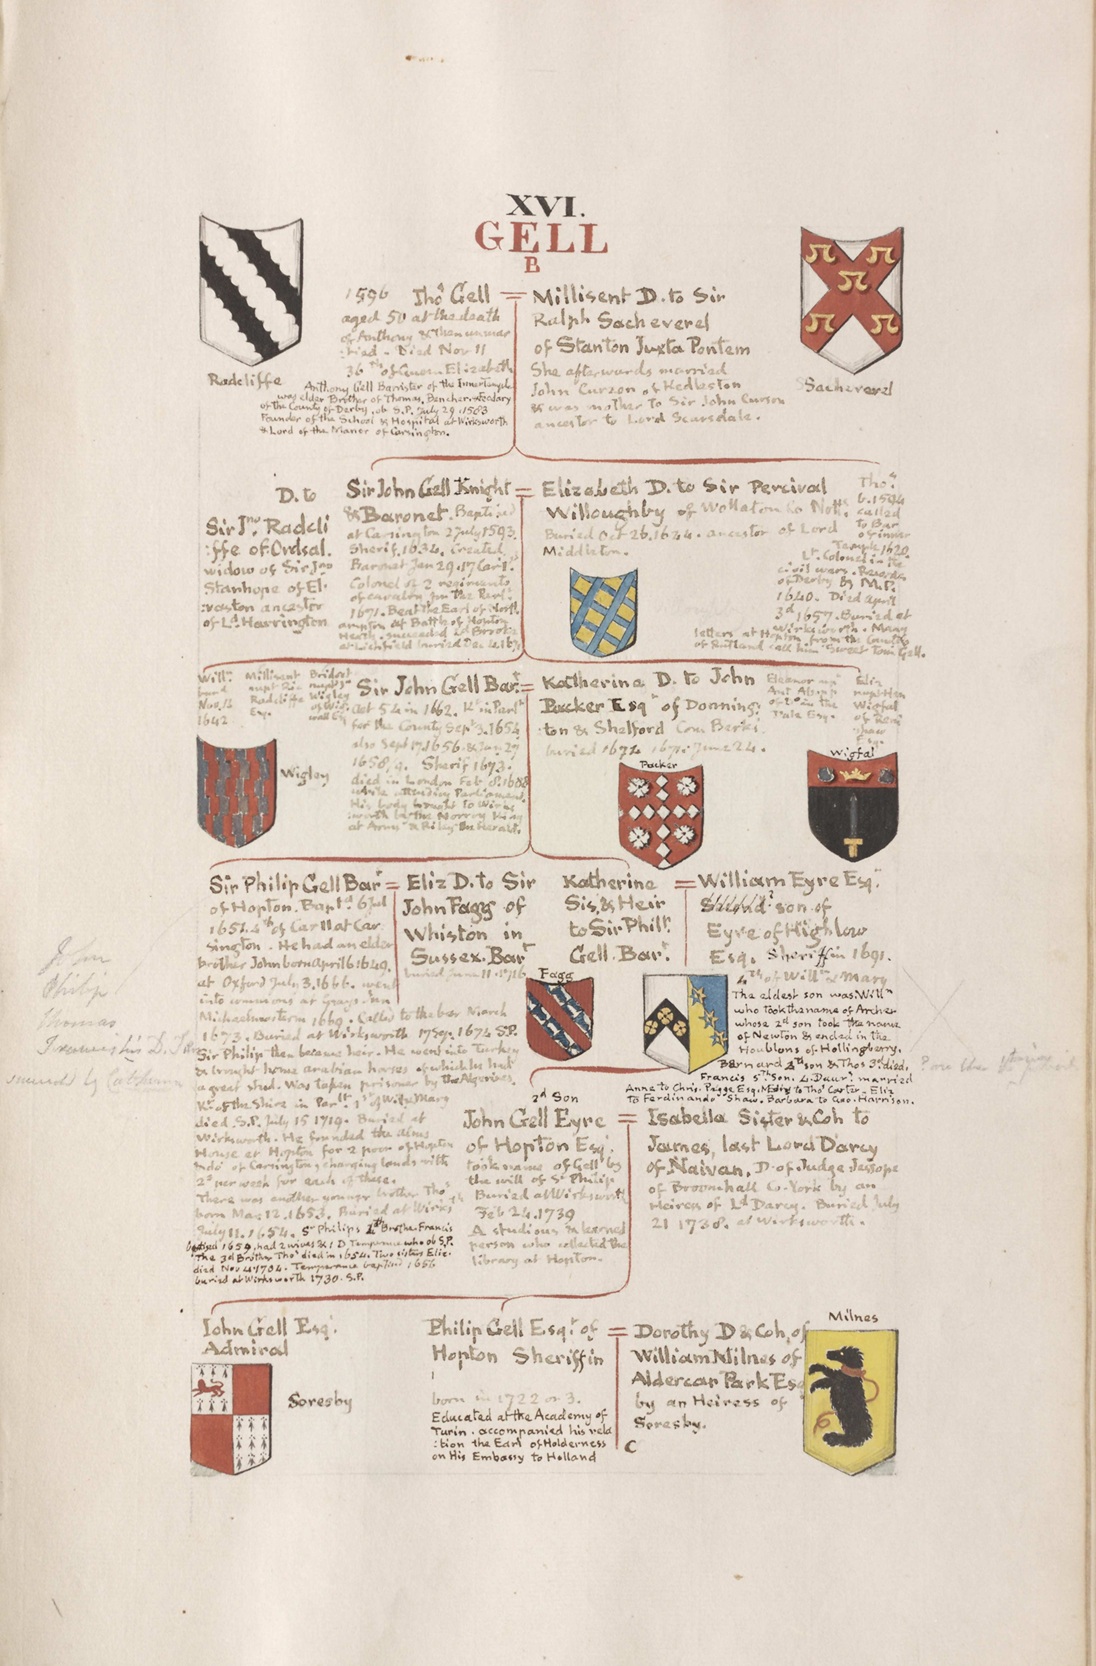 XVI.
GELL
B
1596 Thos Gell = Millisent D. to Sir
aged 50 at the death
of Anthony & then unmar
:ried. Died Nov 11
36th of Queen Elizabeth
Radcliffe
Anthony Gell Barister of the Inner Temple
was elder Brother of Thomas, Bencher
of the County of Derby, ob S.P. July 29. 1583
Founder of the School & Hospital at Wirksworth
& Lord of the Manor of Carsington.
Ralph Sacheverel
of Stanton Juxta Pontem
She afterwards married
John Curzon of Kedleston
& was mother to Sir John Curson
ancestor to Lord Scarsdale.
Sacheverel
D. to
Sir Jno Radcli
:ffe of Ordsal.
widow of Sir Jno
Stanhope of El-
:vaston ancestor
of Ld. Harrington
Sir John Gell Knight =
& Baronet. Baptised
at Carsington 2 July 1593.
Sherif. 1634. Created
Baronet Jan 29. 17 Car 1.
Colonel of 2 regiments
of cavalry for the Parlt.
1671. Beat the Earl of North
ampton at Battle of Hopton
Heath. succeeded Ld Brooke
at Lichfield buried Dec
Elizabeth D. to Sir Percival
Willoughby of Wollaton Co Notts.
Buried Oct 26. 1644. ancestor of Lord
Middleton.
Thos
b. 1594
called
to Bar
of inner
Temple 1620.
Lt. Colonel in the
civil wars. Recorder
of Derby & M.P.
1640. Died April
3d 1657. Buried at
Wirksworth. Many
letters at Hopton from the Countess
of Rutland call him Sweet Tom Gell.
Willm
buried
Nov. 12
1642
Millisent
nupt
Radcliffe
Esq.
Bridget
nupt
Wigley
of Wig-
wall Esq
Wigley
Sir John Gell Bart =
Oct 54 in 1662. Kt in Parlt
for the County Sepr 3. 1654
also Sept 17. 1656. & Jany 27
1658/9. Sherif 1673.
died in London Feb 8. 1688
while attending Parliament.
His body brought to Wirks
:worth by the Norroy King
at Arms & Riley the Herald.
Katherine D. to John
Packer Esqr of Donning:
ton & Shelford Com Berks.
buried 1671. June 24.
Packer
Eleanor nupt
Ant Alsopp
of in the
Dale Esq.
Eliz
nupt Hen
Wigfal
of Reni
:shaw
Esq.
Wigfal
Sir Philip Gell Bart =
of Hopton. Baptd 6 Jul
1651. 4th of Car II at Car
sington. He had an elder
brother John born April 6 1649.
at Oxford July 3. 1666. went
into commons at Grays Inn
Michaelmas term 1669. Called to the bar March
1673. Buried at Wirksworth 17 Sep. 1674 S.P.
Sir Philip then became heir. He went into Turkey
& brought home arabian horses of which he had
a great stud. Was taken prisoner by the Algerines.
Kt of the Shire in Parlt. 1st of Wm & Mary
died S.P. July 15 1719. Buried at
Wirksworth. He founded the alms
House at Hopton for 2 poor of Hopton
& do of Carsington, charging lands with
2s per week for each of these.
There was another younger brother Thos
born Mar. 12. 1653. Buried at Wirks
July 11. 1654. Sr Philips 4th Brother Francis
baptised 1659, had 2 wives & 1 D Temperance who ob S.P.
The 3d Brother Thos died in 1654. Two sisters Eliz.
died Nov 4 1704. Temperance baptised 1656
buried at Wirksworth 1730. S.P.
Eliz D. to Sir
John Fagg of
Whiston in
Sussex. Bart
buried June 11. 1716
Fagg
Katherine =
Sis. & Heir
to Sir Phill:
Gell. Bart.
William Eyre Esqr
son of
Eyre of Highlow
Esq. Sheriff in 1691.
4th of Willm & Mary
The eldest son was Willm
who took the name of Archer
whose 2d son took the name
of Newton & ended in the
Houblons of Hollingberry.
Bernard 4th son & Thos 3d died,
Francis 5th Son. 4 Daurs married
Anne to Chris. Pagge Esq. Mary to Thos Carter. Eliz
to Ferdinando Shaw. Barbara to Geo. Harrison.
John
Philip
Thomas
Francis his D.
2d Son
John Gell Eyre =
of Hopton Esqr
took name of Gell by
the will of Sr Philip
Buried at Wirksworth
Feb 24. 1739
A studious & learned
person who collected the
library at Hopton.
Isabella Sister & Coh to
James, last Lord Darcy
of Naivan, D. of Judge Jessope
of Broomhall Co. York by an
Heiress of Ld Darcy. Buried July
21 1738. at Wirksworth.
John Gell Esqr.
Admiral
Soresby
Philip Gell Esqr of =
Hopton Sheriff in
born in 1722 or 3.
Educated at the Academy of
Turin. accompanied his rela
:tion the Earl of Holderness
on His Embassy to Holland
Dorothy D & Coh, of
William Milnes of
Aldercar Park Esq
by an Heiress of
Soresby.
C
Milnes